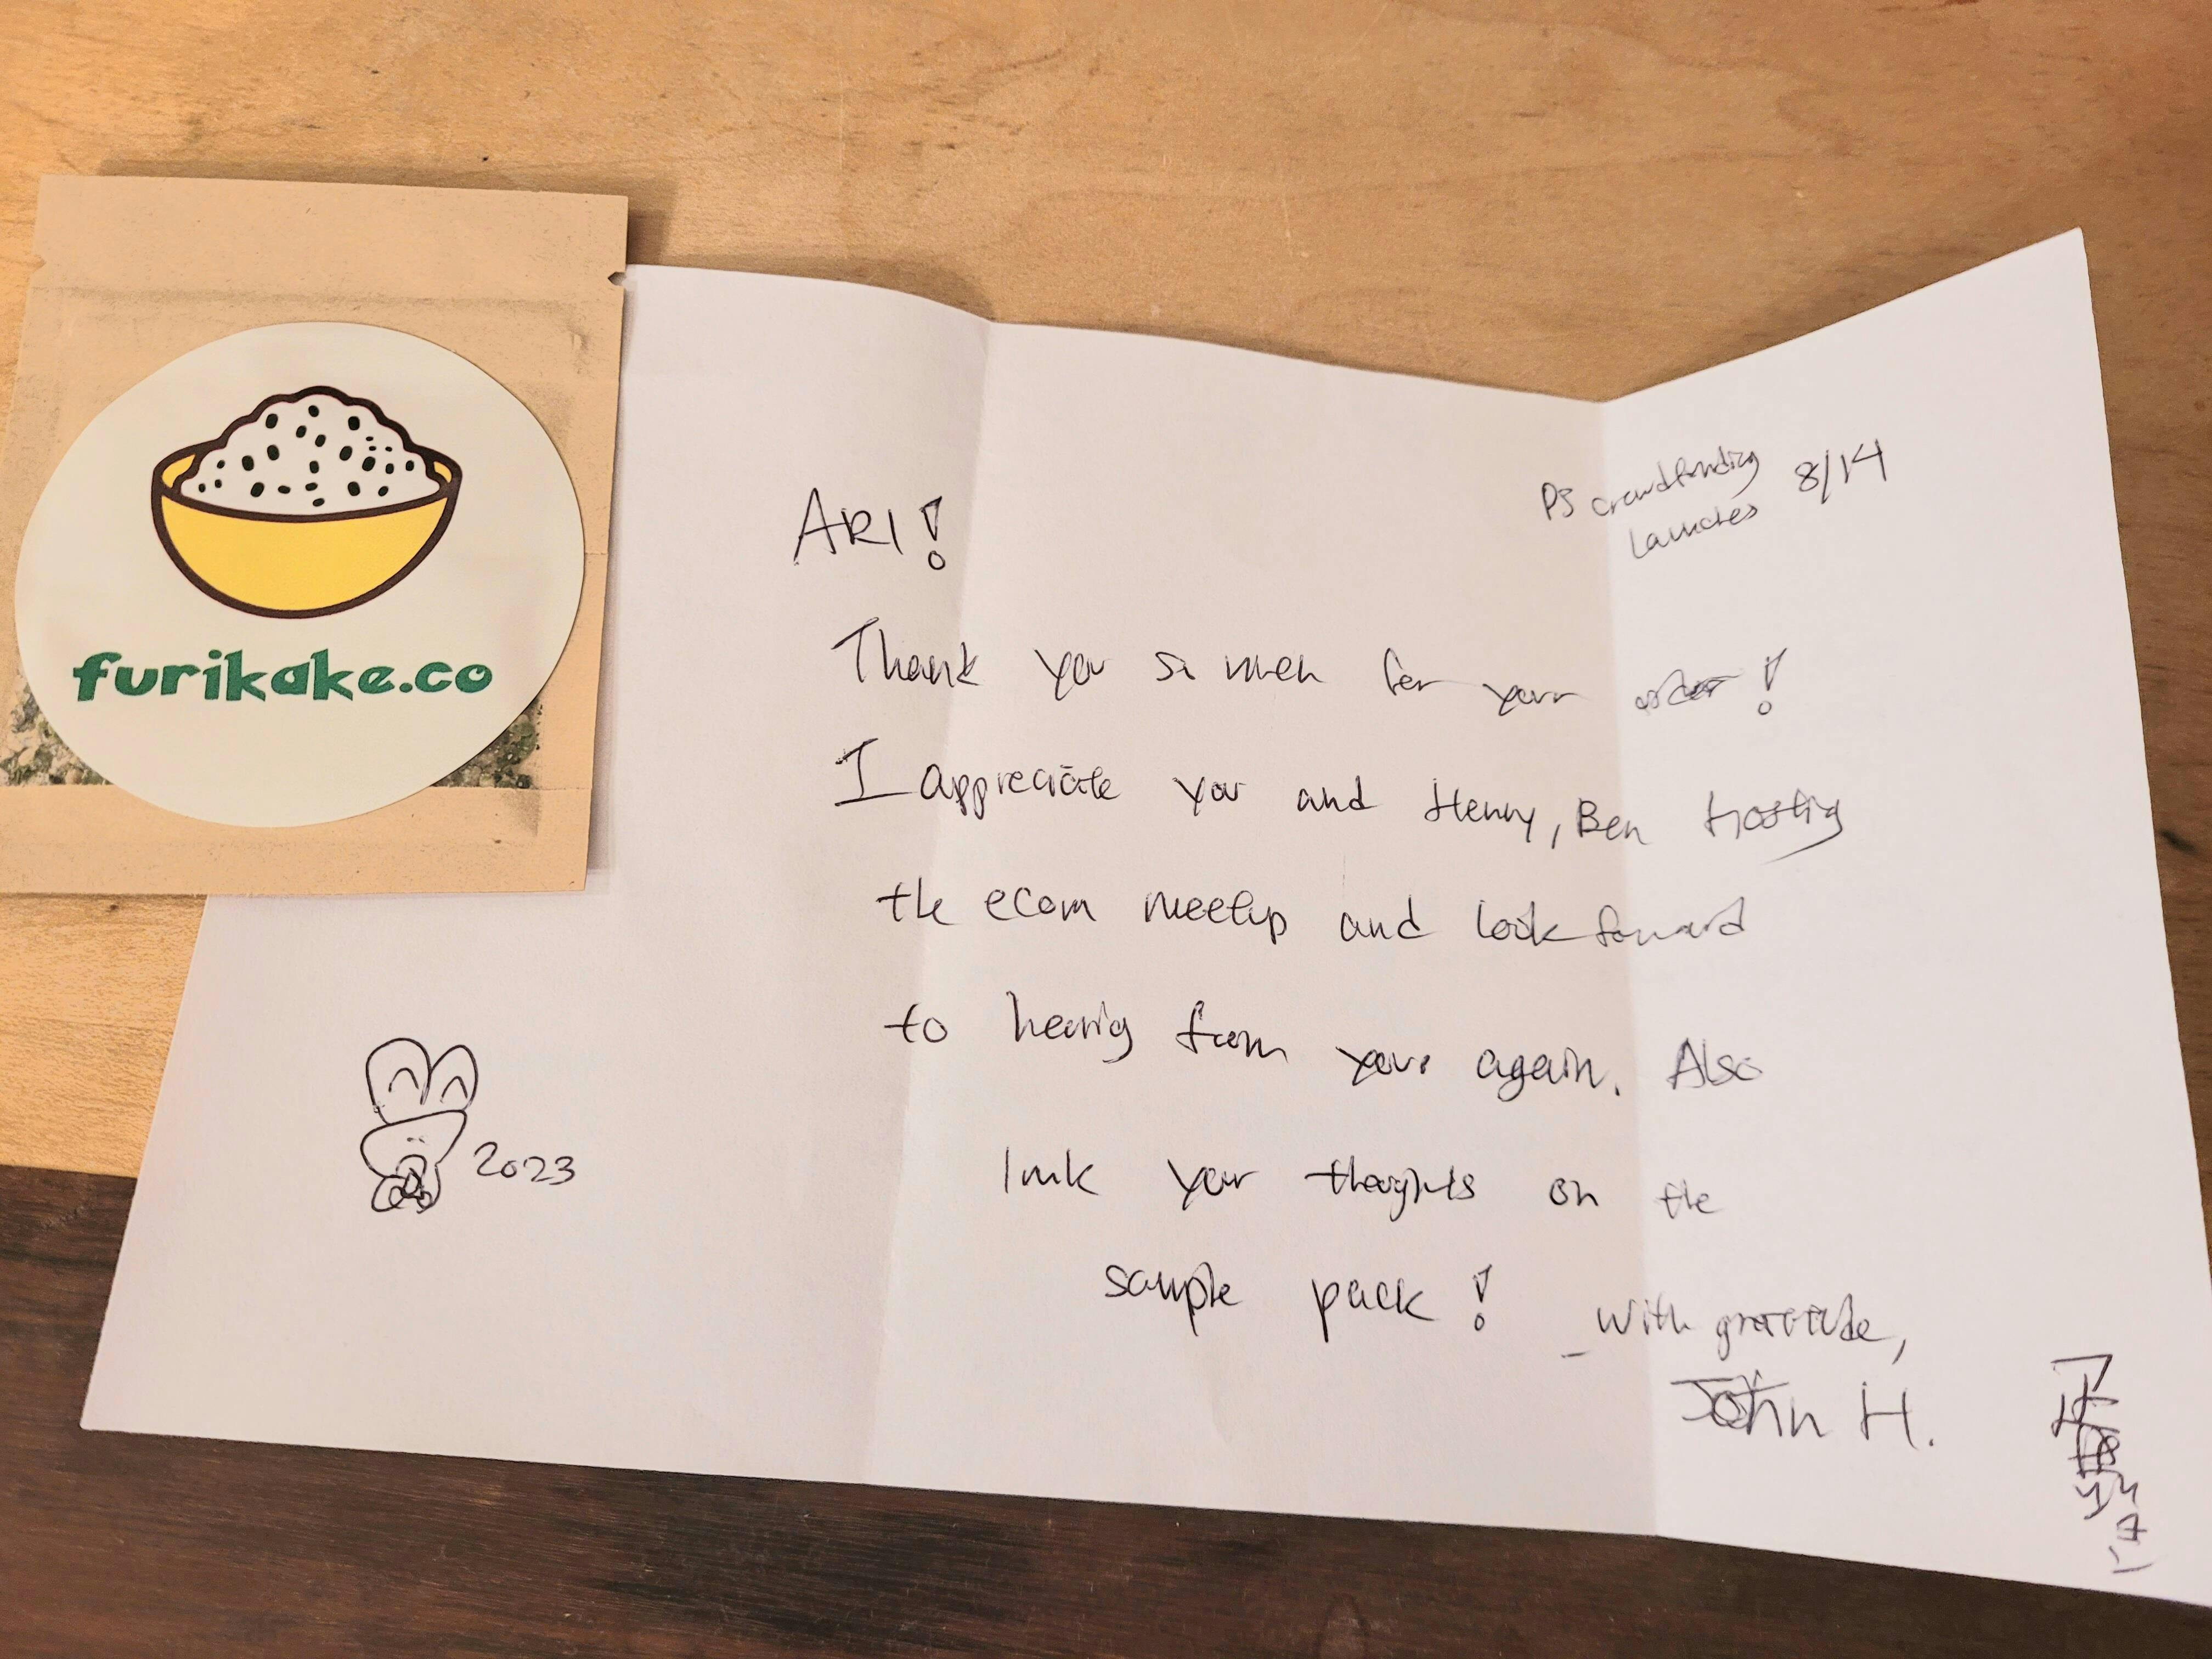 furikake.co
PS crowdfunding 8/14
launches
ARI!
Thank you so much for your order!
I appreciate you and Henry, Ben hosting
the ecom meetup and look forward
to hearing from you again. Also
your thoughts on the
sample pack!
- with gratitude,
John H.
2023